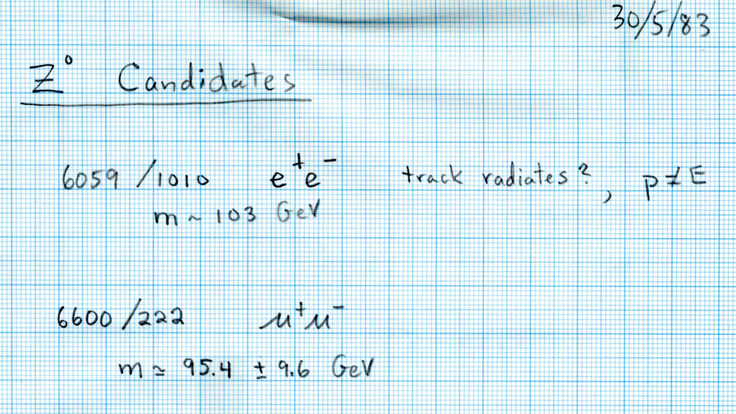 30/5/83
Z° Candidates
6059 /1010 e⁺e⁻ track radiates?, p≠E
m ~ 103 GeV
6600 /222 μ⁺μ⁻
m ≃ 95.4 ± 9.6 GeV